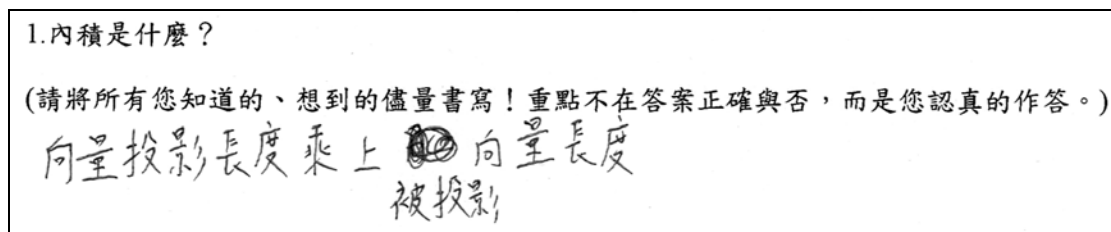 1.內積是什麼？
(請將所有您知道的、想到的儘量書寫！重點不在答案正確與否，而是您認真的作答。)
向量投影長度乘上 向量長度
被投影